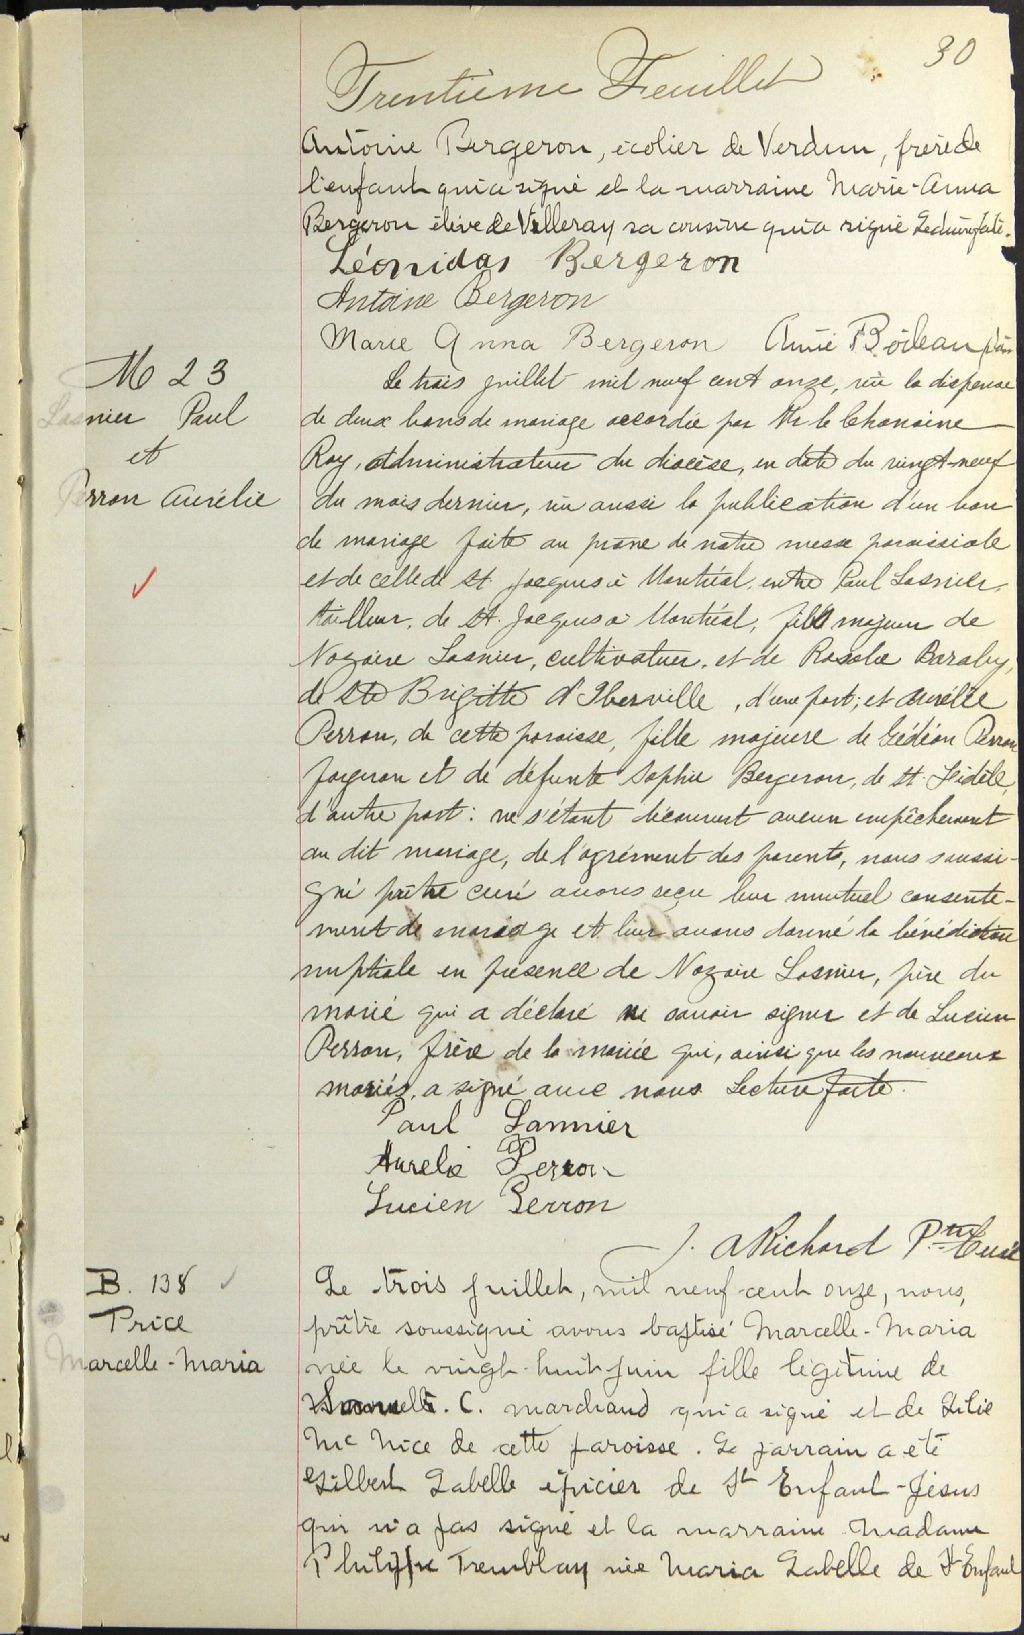 30
Trentième Feuillet
Antoine Bergeron, écolier de Verdun, frère de
l'enfant qui a signé et la marraine Marie-Anna
Bergeron élève de Villeray sa cousine qui a signé Lecture faite.
Léonidas Bergeron
Antoine Bergeron
Marie Anna Bergeron Aimé Boileau ptre
M 23
Lasnier Paul
et
Perron Aurélie
Le trois juillet mil neuf cent onze, vu la dispense
de deux bans de mariage accordée par Mr le Chanoine
Roy, administrateur du diocèse, en date du vingt-neuf
du mois dernier, vu aussi la publication d'un ban
de mariage faite au prône de notre messe paroissiale
et de celle de St. Jacques à Montréal, entre Paul Lasnier,
tailleur, de St. Jacques à Montréal, fils majeur de
Nazaire Lasnier, cultivateur, et de Rosalie Baraby,
de Ste Brigitte d'Iberville, d'une part; et Aurélie
Perron, de cette paroisse, fille majeure de Gédéon Perron
forgeron et de défunte Sophie Bergeron, de St. Fidèle,
d'autre part: ne s'étant découvert aucun empêchement
au dit mariage, de l'agrément des parents, nous soussi-
gné prêtre curé avons reçu leur mutuel consente-
ment de mariage et leur avons donné la bénédiction
nuptiale en présence de Nazaire Lasnier, père du
marié qui a déclaré ne savoir signer et de Lucien
Perron, frère de la mariée qui, ainsi que les nouveaux
mariés, a signé avec nous. Lecture faite.
Paul Lannier
Aurelie Perron
Lucien Perron
J. A Richard Ptre Curé
B. 138
Price
Marcelle-Maria
Le trois juillet, mil neuf cent onze, nous,
prêtre soussigné avons baptisé Marcelle-Maria
née le vingt-huit juin fille légitime de
C. marchand qui a signé et de
Mc Nice de cette paroisse. Le parrain a été
Gilbert Labelle épicier de St Enfant-Jésus
qui n'a pas signé et la marraine Madame
Philippe Tremblay née Maria Labelle de St Enfant